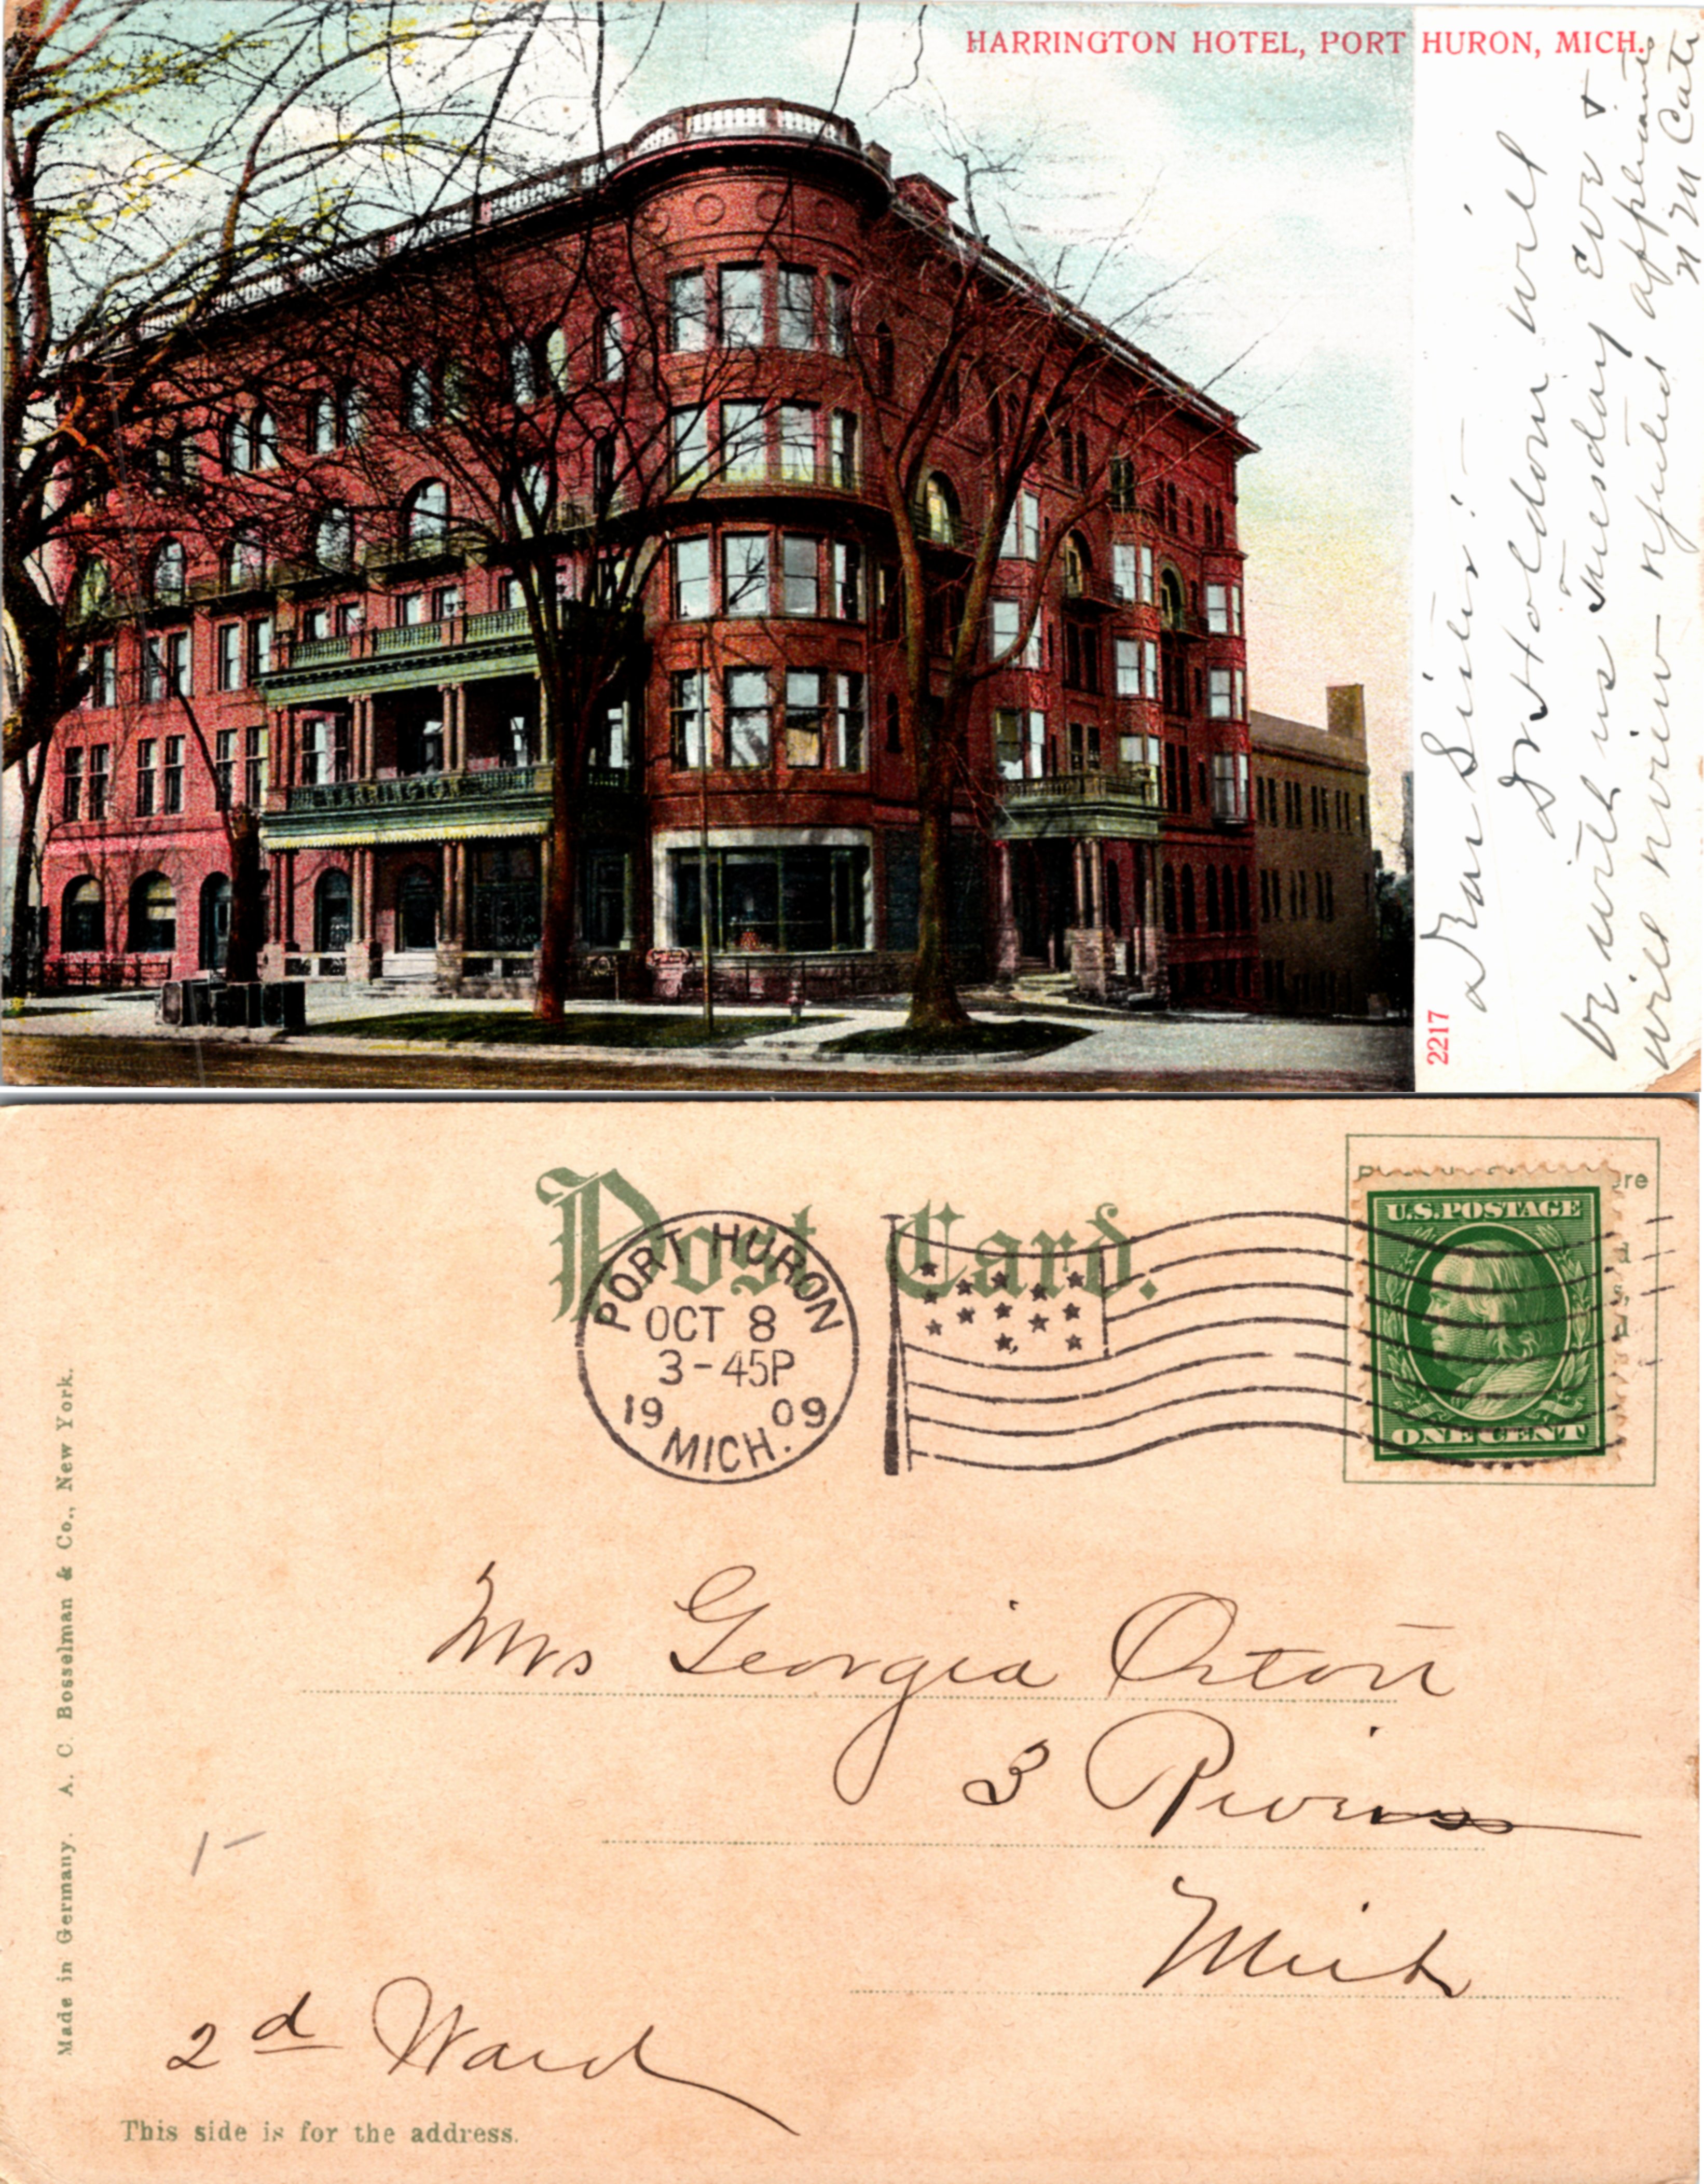 HARRINGTON HOTEL, PORT HURON, MICH.
2217
Dear Sister:—
Dr Holdom will
be with us Tuesday Eve &
will review rejected applicants
N M Cate
Post Card.
PORT HURON
OCT 8
3-45P
19 09
MICH.
U.S. POSTAGE
ONE CENT
Mrs Georgia Orton
3 Rivers
Mich
2d Ward
This side is for the address.
Made in Germany. A. C. Bosselman & Co., New York.